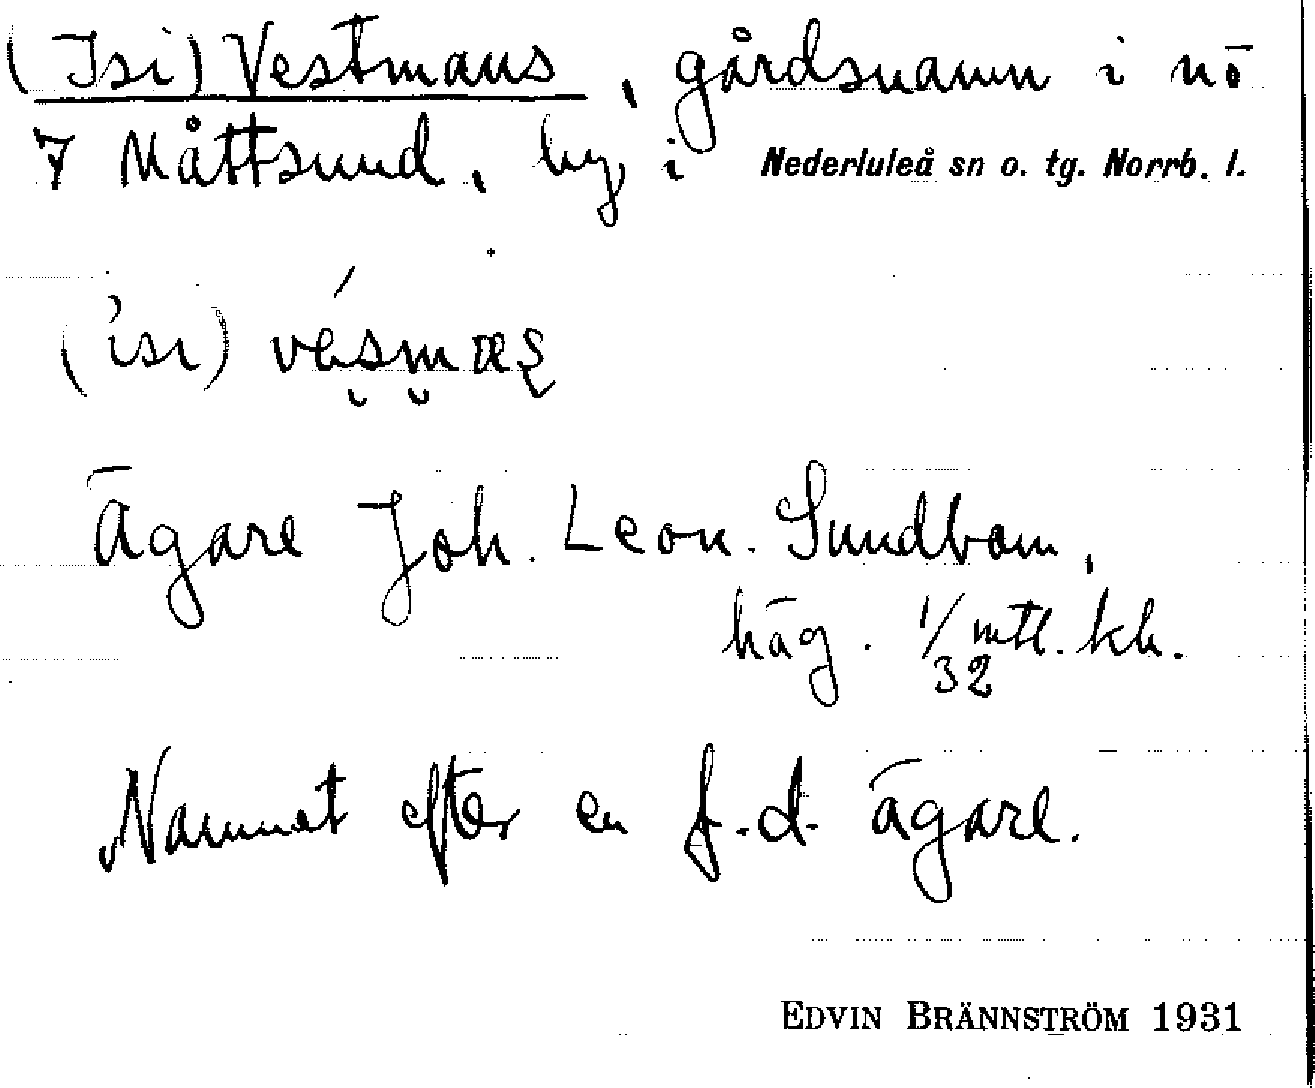 (Isi) Vestmans, gårdsnamn i nō
7 Måttsund, by i Nederluleå sn o. tg. Norrb. l.
(ísı) vésmæs
Ägare Joh. Leon. Sundbom,
häg. 1/32 mtl. kh.
Namnet efter en f.d. ägare.
EDVIN BRÄNNSTRÖM 1931